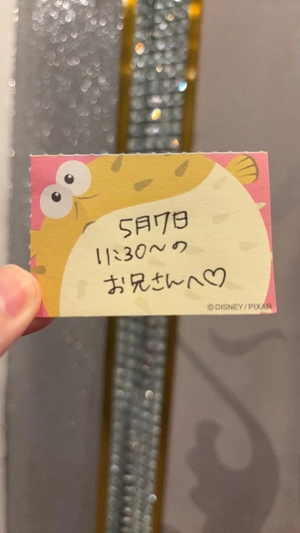 5月7日
11:30〜の
お兄さんへ♡
© DISNEY / PIXAR